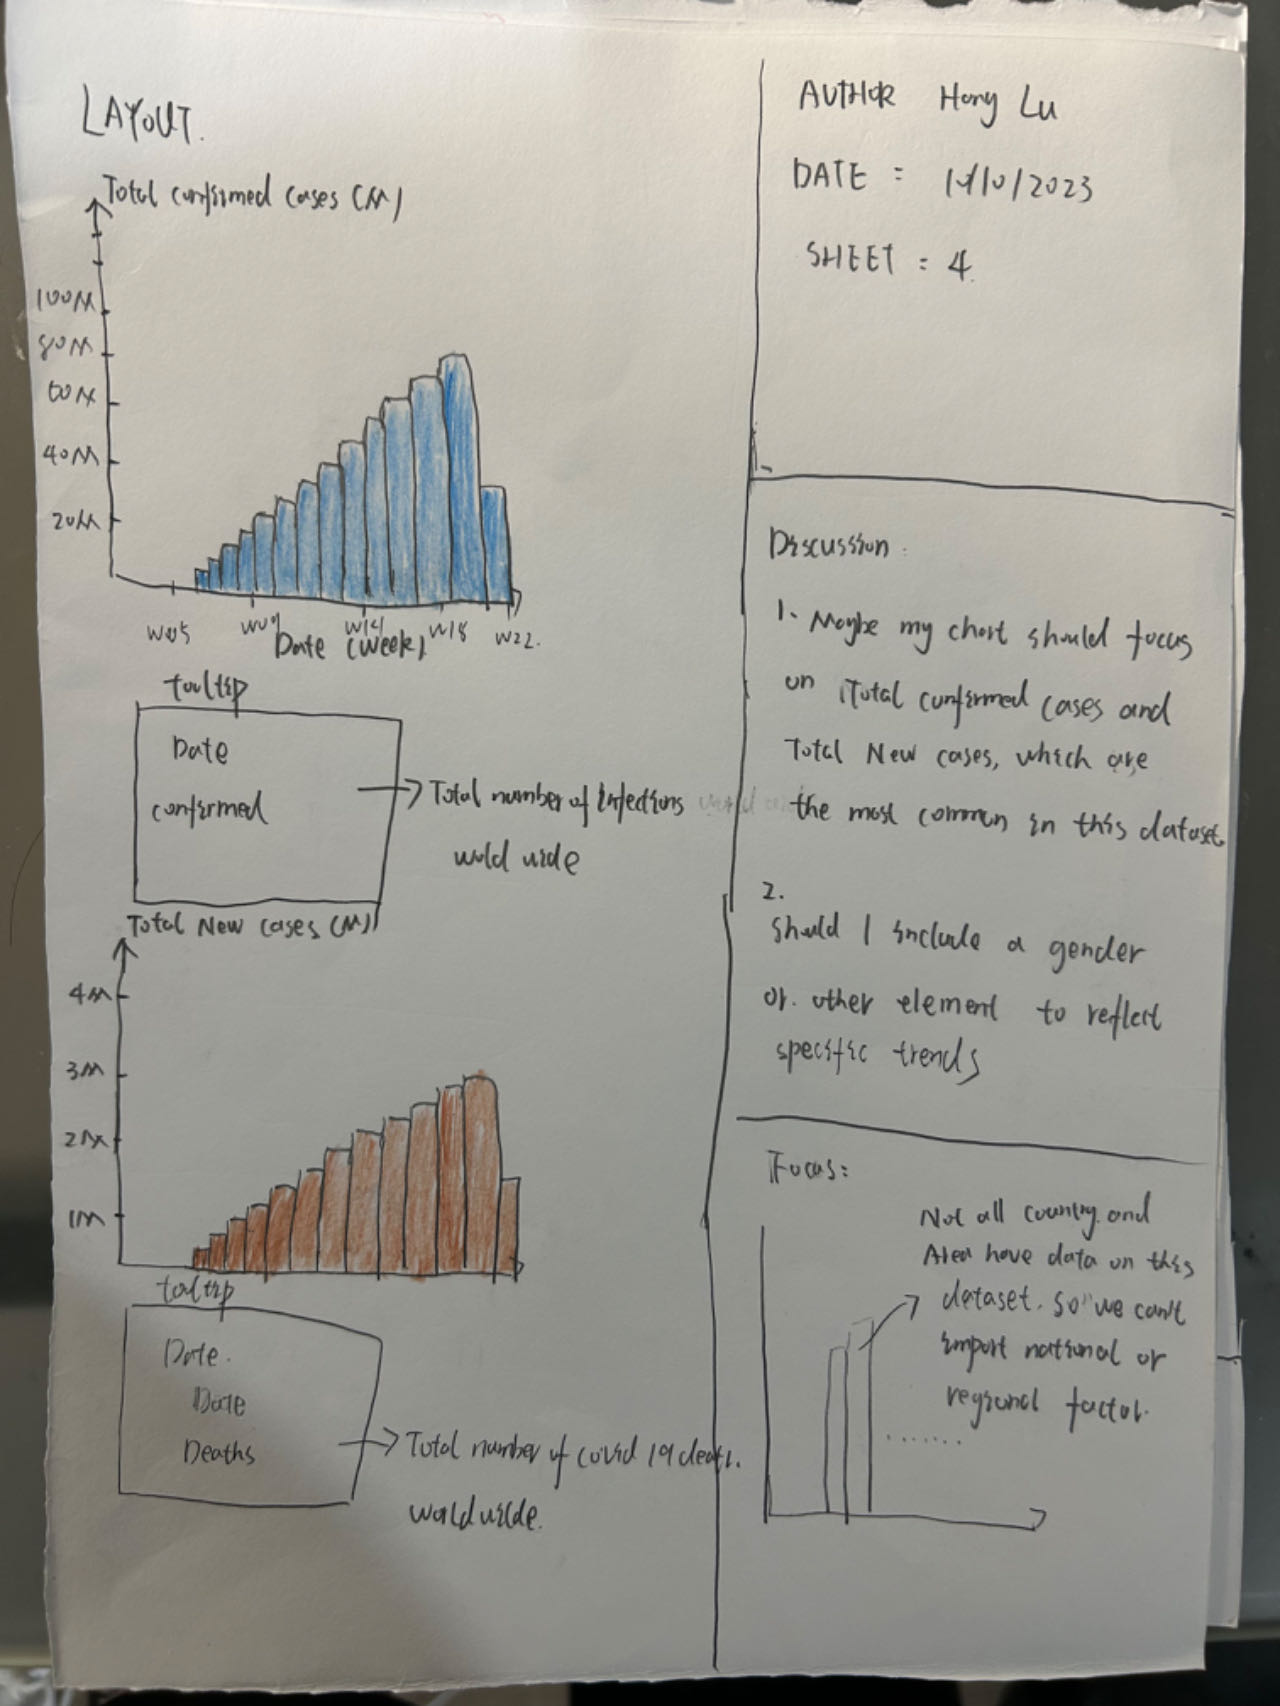 LAYOUT.
Total confirmed cases (M)
100M
80M
60M
40M
20M
W05
W09
W14
W18
W22.
Date (Week)
tooltip
Date
confirmed
Total number of infections
world wide
Total New cases (M)
4M
3M
2M
1M
tooltip
Date.
Date
Deaths
Total number of covid 19 death.
world wide.
AUTHOR Hong Lu
DATE : /10/2023
SHEET : 4
Discussion :
1. Maybe my chart should focus
on Total confirmed cases and
Total New cases, which are
the most common in this dataset
2.
Should I include a gender
or other element to reflect
specific trends
Focus:
Not all country and
Area have data on this
dataset. so we can't
import national or
regional factor.
.......